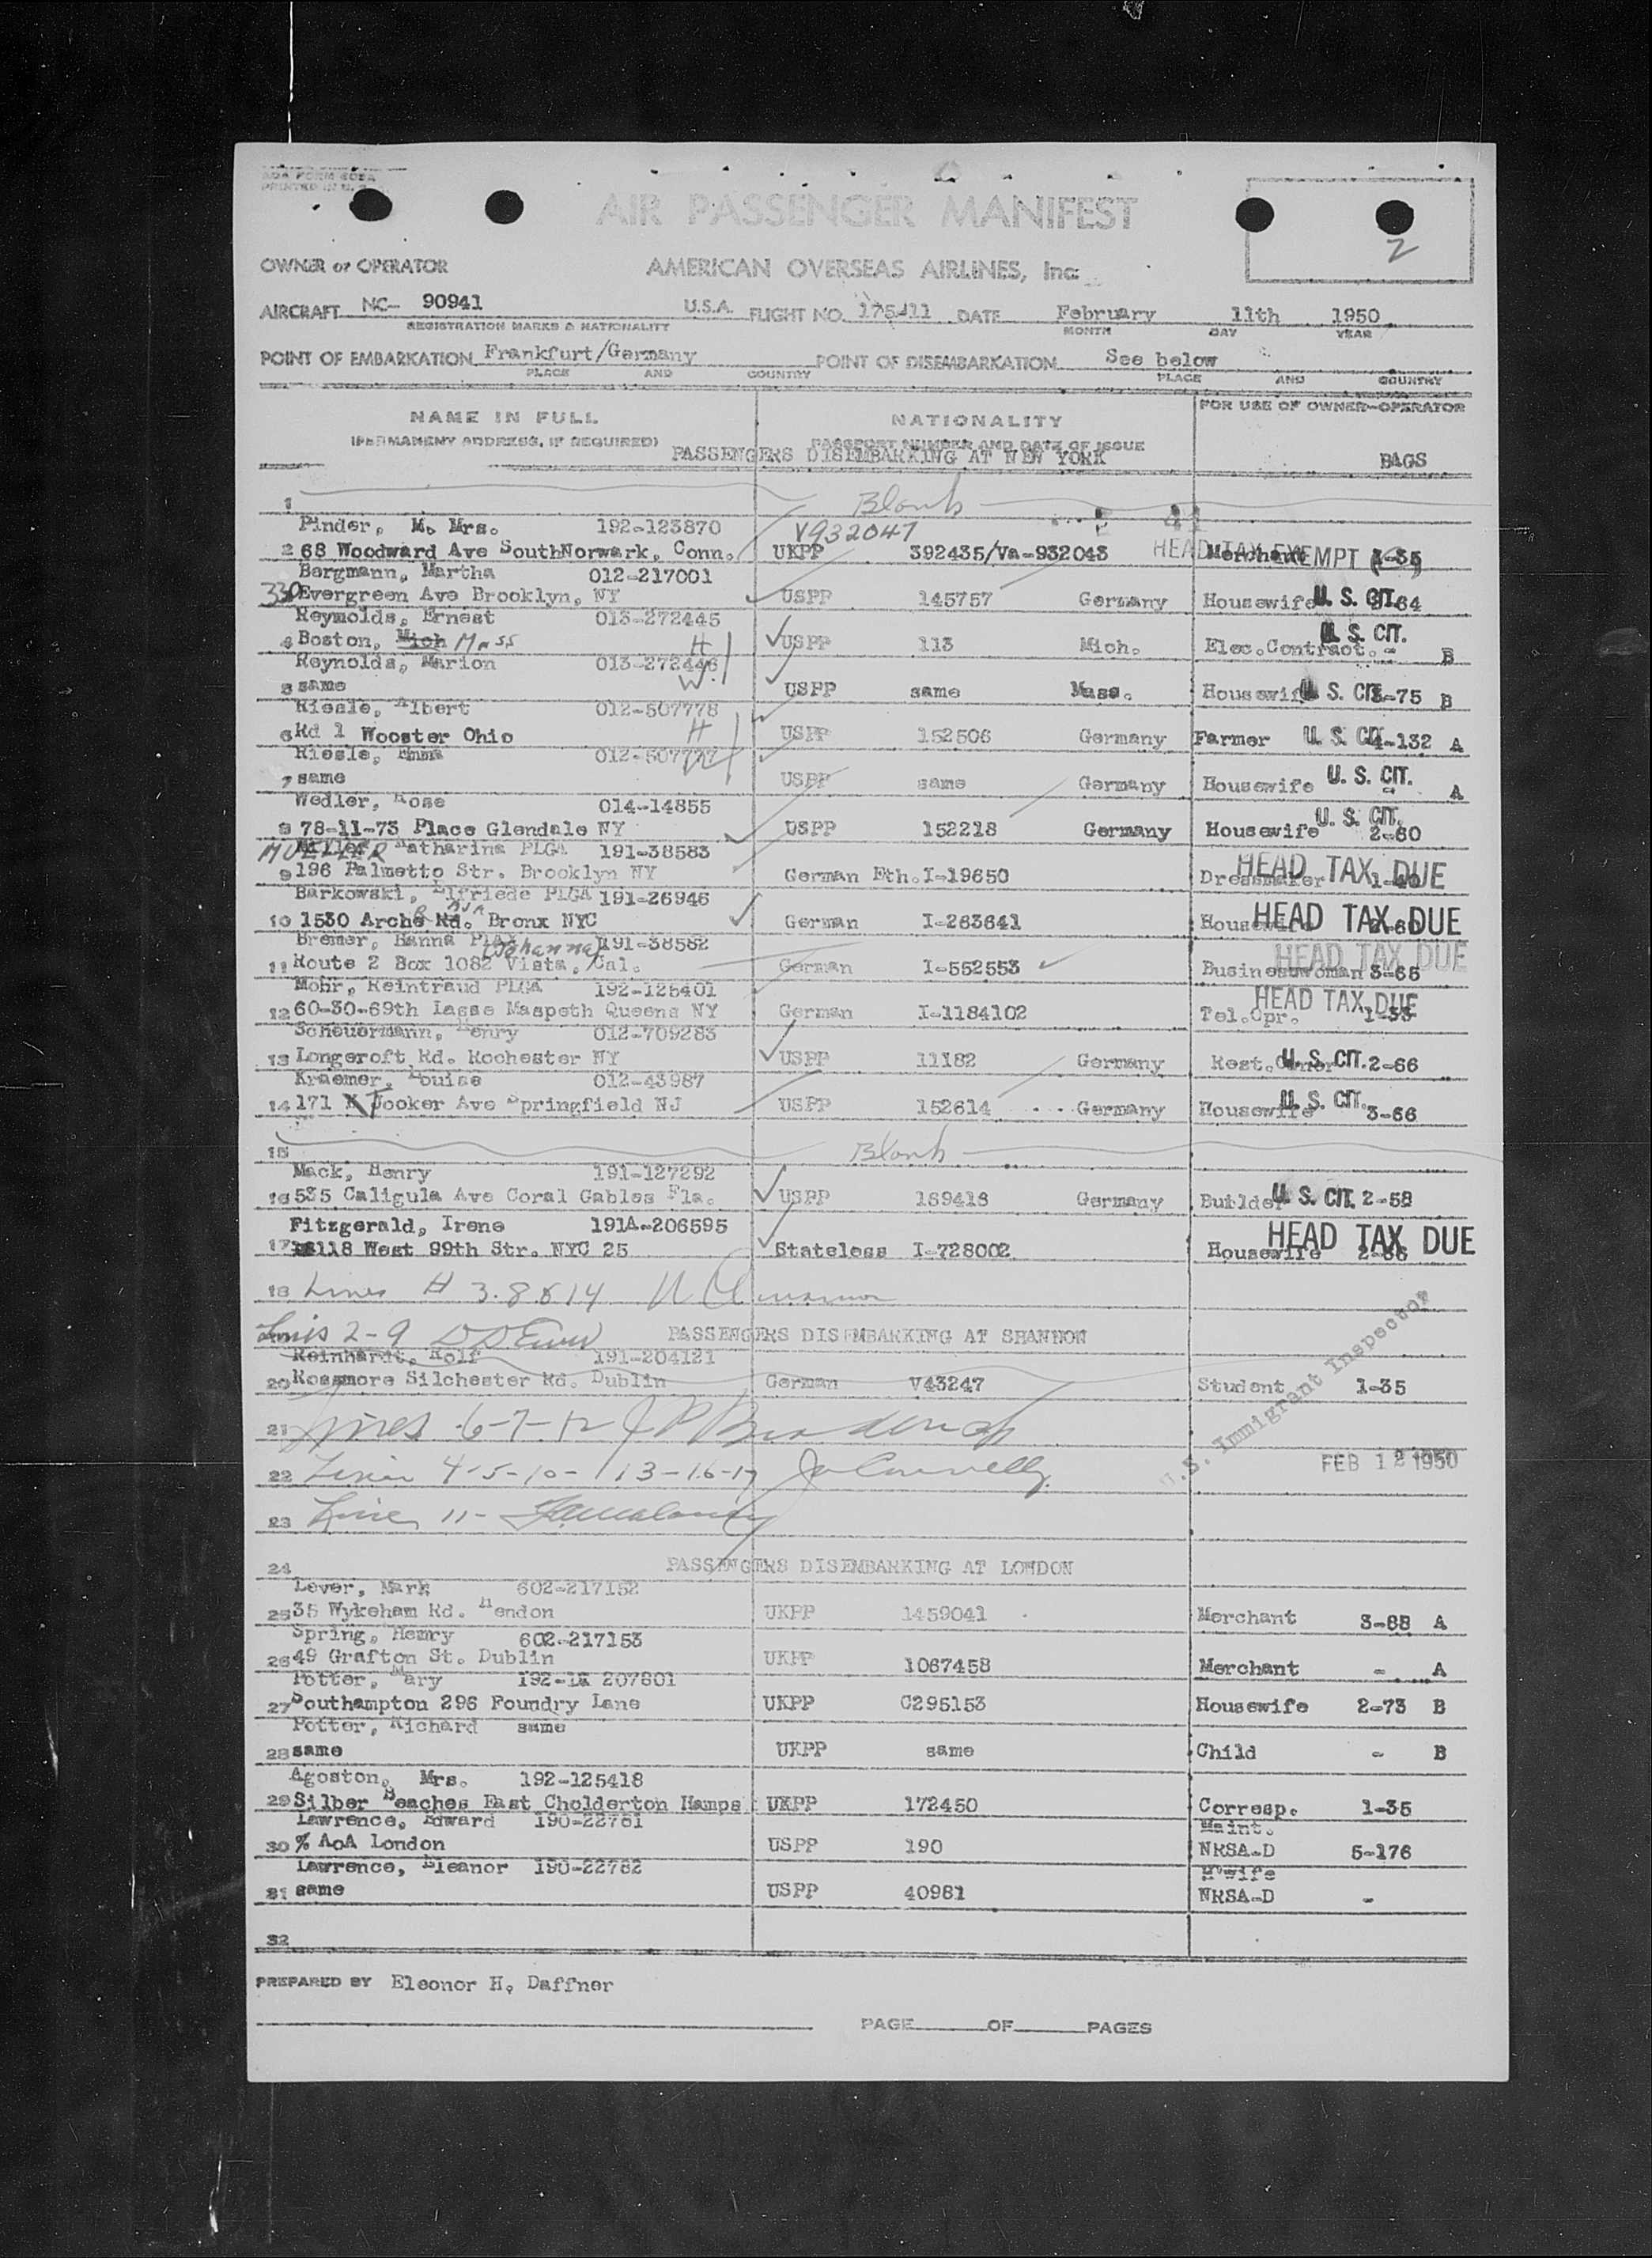 AOA FORM 602A
PRINTED IN U. S.
AIR PASSENGER MANIFEST
2
OWNER or OPERATOR AMERICAN OVERSEAS AIRLINES, Inc.
AIRCRAFT NC- 90941 U.S.A. FLIGHT NO. 175-11 DATE February 11th 1950
REGISTRATION MARKS & NATIONALITY MONTH DAY YEAR
POINT OF EMBARKATION Frankfurt/Germany POINT OF DISEMBARKATION See below
PLACE AND COUNTRY PLACE AND COUNTRY
NAME IN FULL NATIONALITY FOR USE OF OWNER-OPERATOR
(PERMANENT ADDRESS, IF REQUIRED) PASSPORT NUMBER AND DATE OF ISSUE
PASSENGERS DISEMBARKING AT NEW YORK BAGS
1 Blank
Pinder, M. Mrs. 192-123870 V932047
2 68 Woodward Ave SouthNorwark, Conn. UKPP 392435/Va-932043 Merchant HEAD TAX EXEMPT 1-35
Bergmann, Martha 012-217001
330 Evergreen Ave Brooklyn, NY USPP 145757 Germany Housewife U. S. CIT. 3-64
Reymolds, Ernest 013-272445
4 Boston, Mich Mass H USPP 113 Mich. Elec.Contract. U. S. CIT. - B
Reynolds, Marion 013-272446
5 same W USPP same Mass. Housewife U. S. CIT. 3-75 B
Riesle, Albert 012-507778
6 Rd 1 Wooster Ohio H USPP 152506 Germany Farmer U. S. CIT. 4-132 A
Riesle, Emma 012-507777
7 same W USPP same Germany Housewife U. S. CIT. - A
Wedler, Rose 014-14855
8 78-11-73 Place Glendale NY USPP 152218 Germany Housewife U. S. CIT. 2-60
MUELLER Katharina PLGA 191-38583
9 196 Palmetto Str. Brooklyn NY German Eth. I-19650 Dressmaker HEAD TAX DUE
Barkowski, Elfriede PLGA 191-26946
10 1530 Arche Rd. Bronx NYC German I-263641 HEAD TAX DUE
Bremer, Hanna (Johanna) 191-38582
11 Route 2 Box 1082 Vista, Cal. German I-552553 Businesswoman 3-65 HEAD TAX DUE
Mohr, Reintraud PLGA 192-125401
12 60-30-69th Lasse Maspeth Queens NY German I-1184102 Tel.Opr. HEAD TAX DUE 1-33
Scheuermann, Henry 012-709283
13 Longcroft Rd. Rochester NY USPP 11182 Germany Rest.Owner U. S. CIT. 2-66
Kraemer, Louise 012-43987
14 171 Tooker Ave Springfield NJ USPP 152614 Germany Housewife U. S. CIT. 3-66
15 Blank
Mack, Henry 191-127292
16 535 Caligula Ave Coral Gables Fla. USPP 189418 Germany Builder U. S. CIT. 2-58
Fitzgerald, Irene 191A-206595
17 118 West 99th Str. NYC 25 Stateless I-728002 Housewife HEAD TAX DUE
18 Lines # 3.8.&14
Lines 2-9 PASSENGERS DISEMBARKING AT SHANNON
Reinhardt, Rolf 191-204121
20 Rossmore Silchester Rd. Dublin German V43247 Student 1-35
21 Lines 6-7-12
U.S. Immigrant Inspector
22 Lines 4-5-10-13-16-17 Connelly FEB 12 1950
23 Line 11-
24 PASSENGERS DISEMBARKING AT LONDON
Lever, Mark 602-217152
25 35 Wykeham Rd. Hendon UKPP 1459041 Merchant 3-88 A
Spring, Henry 602-217153
26 49 Grafton St. Dublin UKPP 1067458 Merchant - A
Potter, Mary 192-1A 207801
27 Southampton 296 Foundry Lane UKPP C295153 Housewife 2-73 B
Potter, Richard same
28 same UKPP same Child - B
Agoston, Mrs. 192-125418
29 Silber Beaches East Cholderton Hamps UKPP 172450 Corresp. 1-35
Lawrence, Edward 190-22761 Maint.
30 % AoA London USPP 190 NRSA-D 5-176
Lawrence, Eleanor 190-22762 H'wife
31 same USPP 40981 NRSA-D -
32
PREPARED BY Eleonor H. Daffner
PAGE OF PAGES